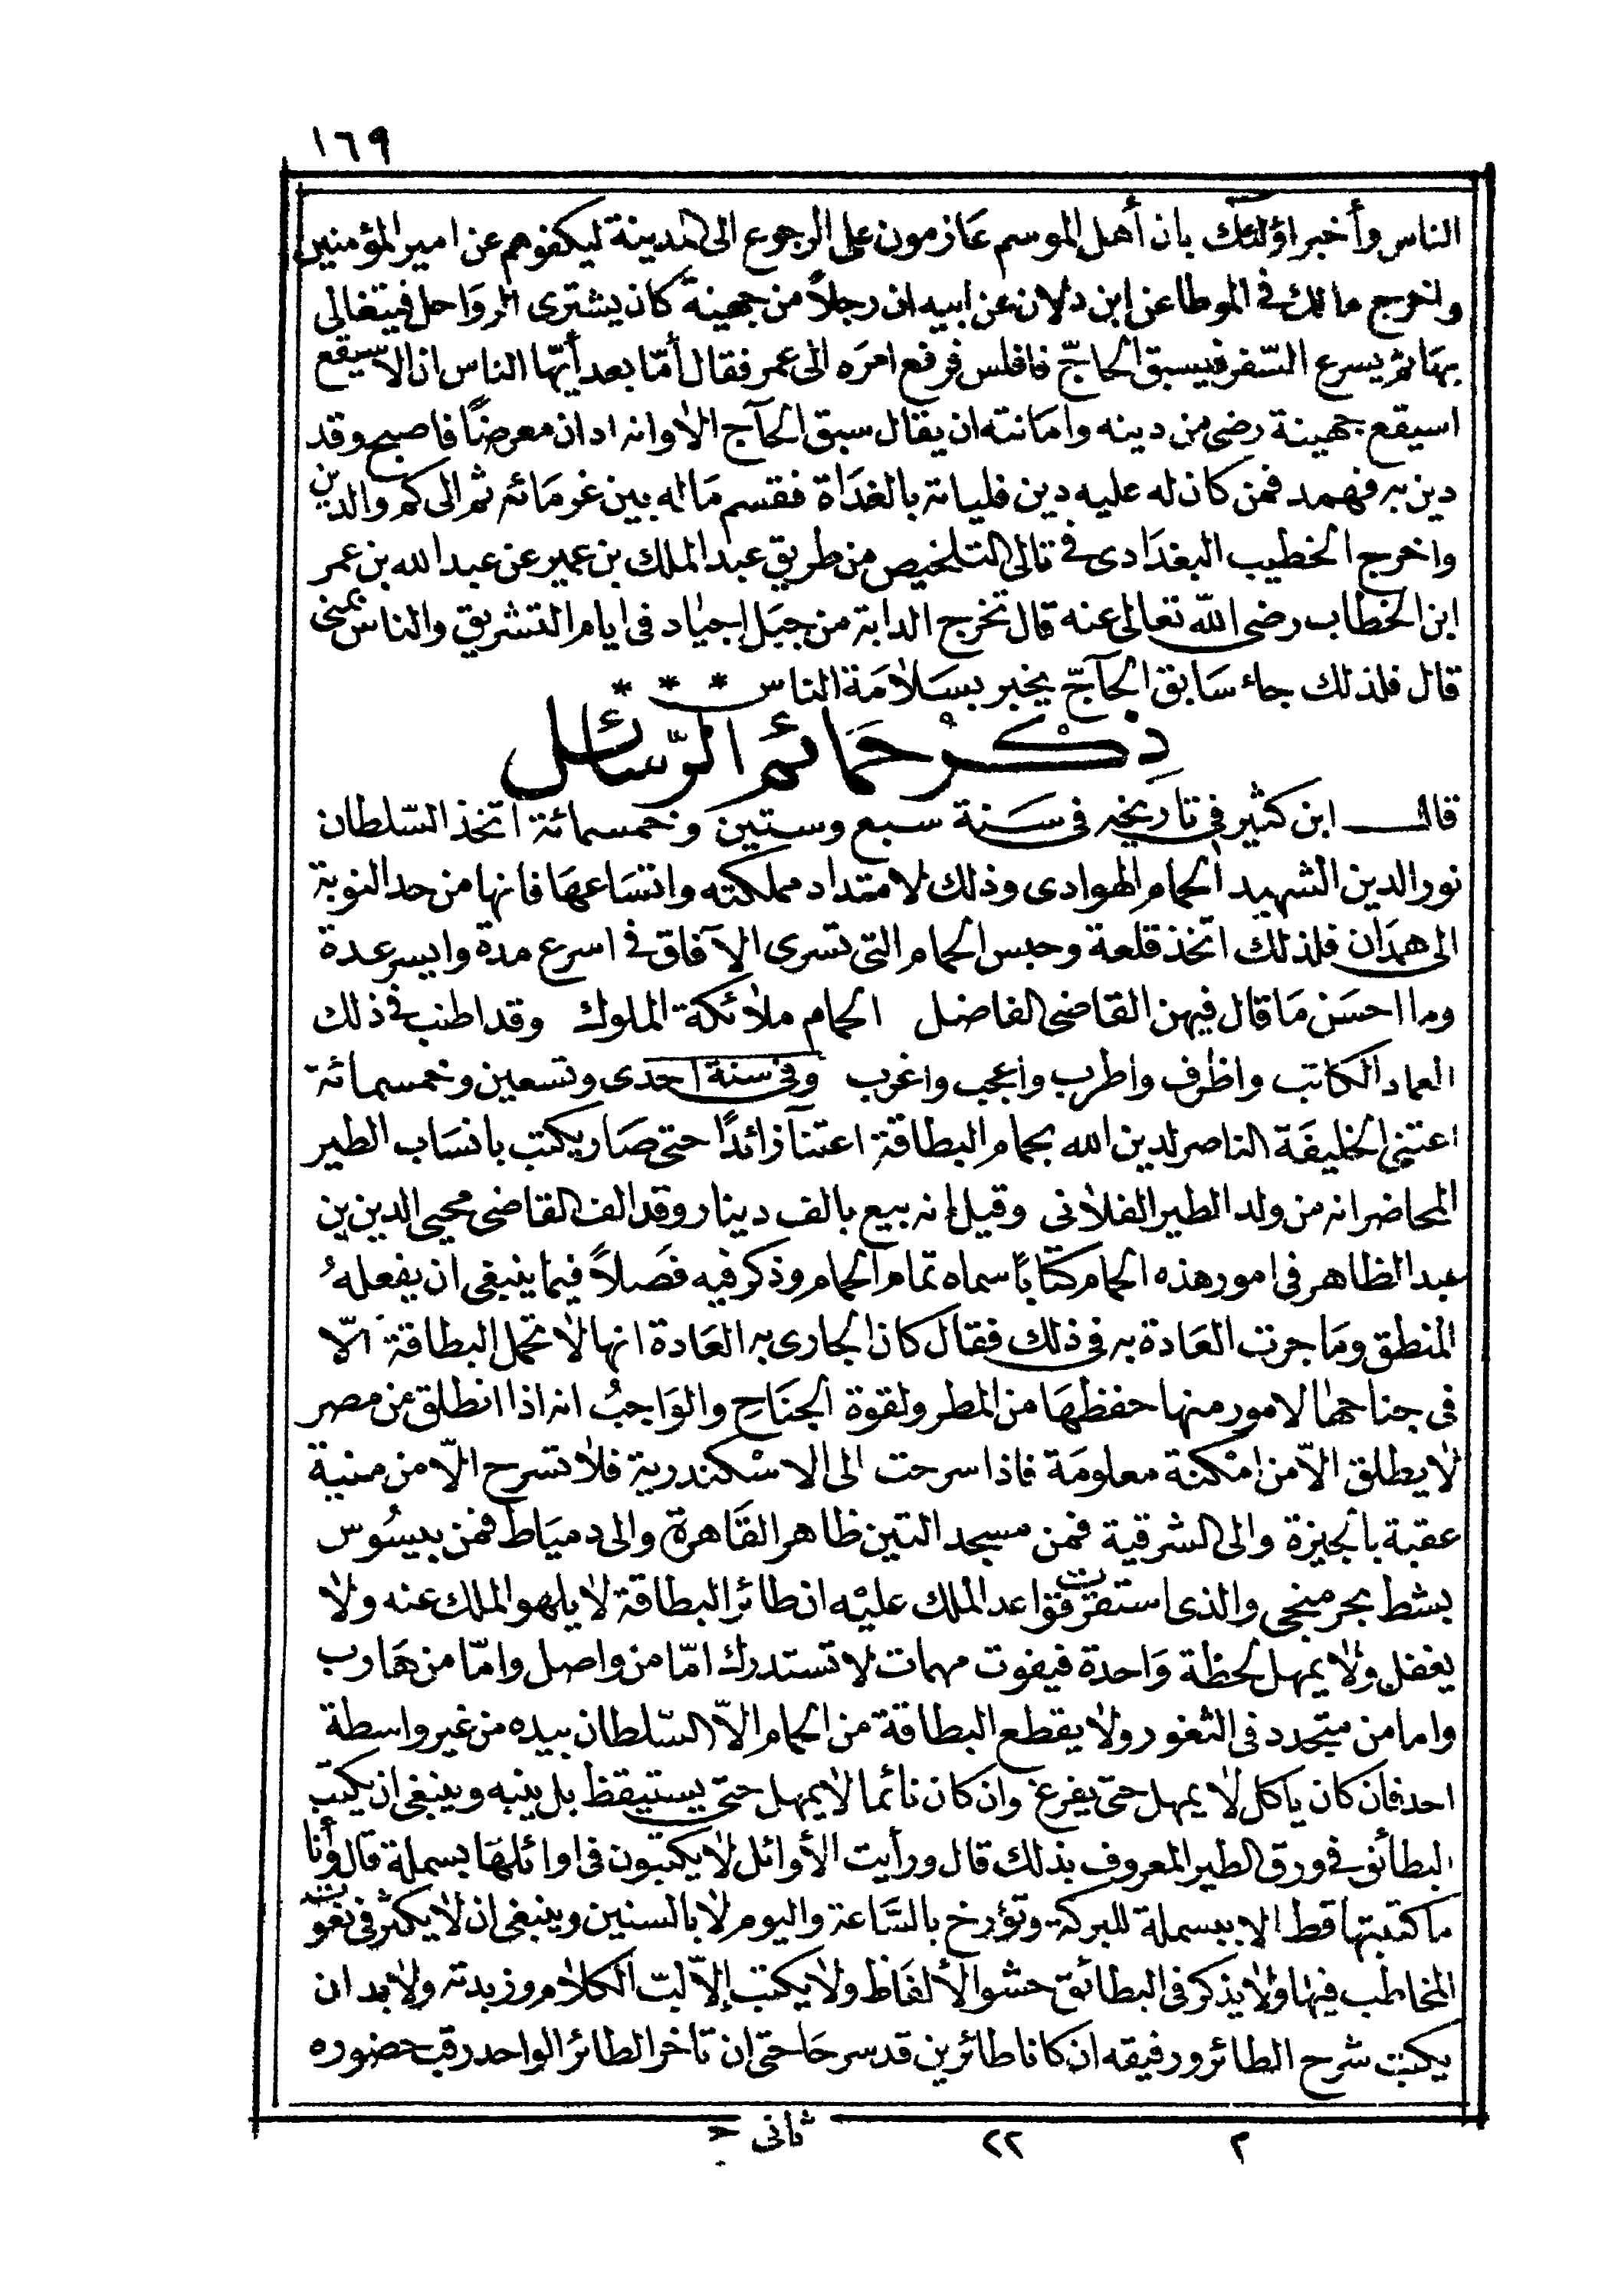 ١٦٩
الناس وأخبر اؤلئك بان أهل الموسم عازمون على الرجوع الى المدينة ليكفوهم عن امير المؤمنين
واخرج مالك في الموطا عن ابن دلان عن ابيه ان رجلاً من جهينة كان يشترى الرواحل فيتغالى
بها ثم يسرع السّفر فيسبق الحاجّ فافلس فرفع امره الى عمر فقال أمّا بعد أيّها الناس ان الاسيقع
اسيقع جهينة رضى من دينه وامانته ان يقال سبق الحآج الا وانه ادان معرضاً فاصبح وقد
دين به فهمد فمن كان له عليه دين فلياته بالغداة فقسم ماله بين غرمائه ثم الى كم والدين
واخرج الخطيب البغدادى في تالى التلخيص من طريق عبد الملك بن عمير عن عبد الله بن عمر
ابن الخطاب رضى الله تعالى عنه قال تخرج الدابة من جبل اجياد فى ايام التشريق والناس بمنى
قال فلذلك جاء سابق الحآجّ يخبر بسلامة الناس * * *
ذكر حمائم الرّسائل
قال ابن كثير في تاريخه فى سنة سبع وستين وخمسمائة اتخذ السّلطان
نور الدين الشهيد الحمام الهوادى وذلك لامتداد مملكته واتساعها فانها من حد النوبة
الى همدان فلذلك اتخذ قلعة وحبس الحمام التى تسرى الآفاق في اسرع مدة وايسر عدة
وما احسن ما قال فيهن القاضى الفاضل الحمام ملائكة الملوك وقد اطنب في ذلك
العماد الكاتب واظرف واطرب واعجب واغرب وفى سنة احدى وتسعين وخمسمائة
اعتنى الخليفة الناصر لدين الله بحمام البطاقة اعتنآ زائدًا حتى صار يكتب بانساب الطير
المحاضر انه من ولد الطير الفلانى وقيل إنه بيع بالف دينار وقد الف القاضى محيى الدين بن
عبد الظاهر فى امور هذه الحمام كتاباً سماه تمام الحمام وذكر فيه فصلاً فيما ينبغى ان يفعله
المنطق وما جرت العادة به فى ذلك فقال كان الجارى به العادة انها لا تحمل البطاقة الّا
فى جناحها لامور منها حفظها من المطر ولقوة الجناح والواجبُ انه اذا انطلق من مصر
لا يطلق الاّ من امكنة معلومة فاذا سرحت الى الاسكندرية فلا تسرح الّا من منية
عقبة بالجيزة والى الشرقية فمن مسجد التين ظاهر القاهرة والى دمياط فمن بيسُوس
بشط بحر منجى والذى استقرت قواعد الملك عليه ان طائر البطاقة لا يلهو الملك عنه ولا
يغفل ولا يمهل لحظة واحدة فيفوت مهمات لا تستدرك امّا من واصل وامّا من هارب
واما من متجدد فى الثغور ولا يقطع البطاقة من الحمام الاّ السّلطان بيده من غير واسطة
احد فان كان ياكل لا يمهل حتى يفرغ وان كان نائما لا يمهل حتى يستيقظ بل ينبه وينبغى ان يكتب
البطائق في ورق الطير المعروف بذلك قال ورأيت الأوائل لا يكتبون فى اوائلها بسملة قال وأنا
ما كتبتها قط الا ببسملة للبركة وتؤرخ بالسّاعة واليوم لا بالسنين وينبغى ان لا يكثر فى نعوت
المخاطب فيها ولا يذكر فى البطائق حشو الألفاظ ولا يكتب إلاّ لبّ الكلام وزبدته ولا بد ان
يكتب شرح الطائر ورفيقه ان كانا طائرين قد سرحا حتى ان تاخر الطائر الواحد رقب حضوره
٢ ٢٢ ثانى ح